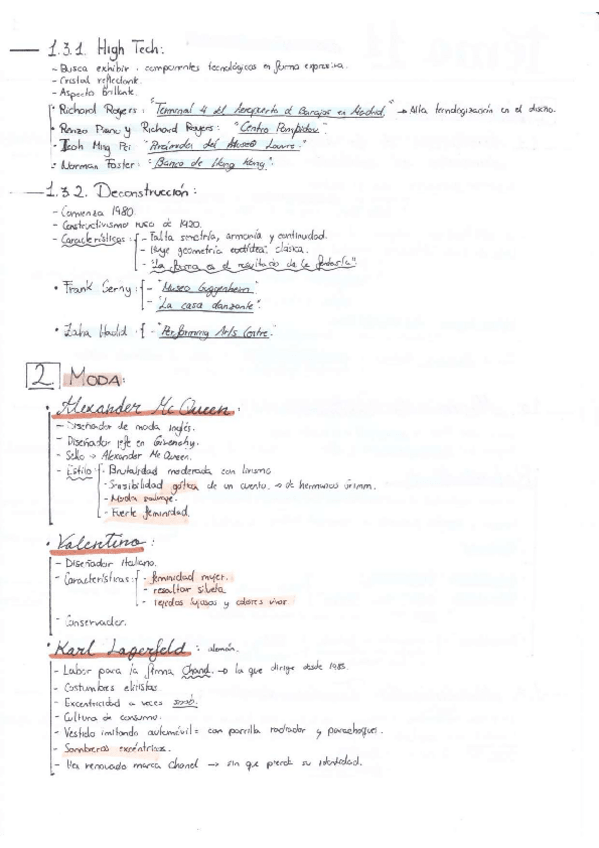 1.3.1. High Tech:
- Busca exhibir componentes tecnológicos en forma expresiva.
- Cristal reflectante.
- Aspecto Brillante.
• Richard Rogers: "Terminal 4 del Aeropuerto d Barajas en Madrid" → Alta tecnologización en el diseño.
• Renzo Piano y Richard Rogers: "Centro Pompidou".
• Ieoh Ming Pei: "Pirámides del Museo Louvre".
• Norman Foster: "Banco de Hong Kong".
1.3.2. Deconstrucción:
- Comienza 1980.
- Constructivismo ruso de 1920.
- Características: - Falta simetría, armonía y continuidad.
- Huye geometría euclídea, clásica.
- "La forma es el resultado de la fantasía".
• Frank Gerhy: - "Museo Guggenheim"
- "La casa danzante".
• Zaha Hadid: - "Performing Arts Centre."
2 MODA:
• Alexander Mc Queen:
- Diseñador de moda inglés.
- Diseñador jefe en Givenchy.
- Sello → Alexander Mc Queen.
- Estilo: - Brutalidad moderada con lirismo
- Sensibilidad gótica de un cuento → de hermanos Grimm.
- Moda salvaje.
- Fuerte feminidad.
• Valentino:
- Diseñador italiano.
- Características: - feminidad mujer.
- resaltar silueta
- tejidos lujosos y colores vivos.
- Conservador.
• Karl Lagerfeld: alemán.
- Labor para la firma Chanel. → la que dirige desde 1983.
- Costumbres elitistas.
- Excentricidad a veces snob.
- Cultura de consumo.
- Vestido imitando automóvil = con parrilla radiador y parachoques.
- Sombreros excéntricos.
- Ha renovado marca Chanel → sin que pierda su identidad.